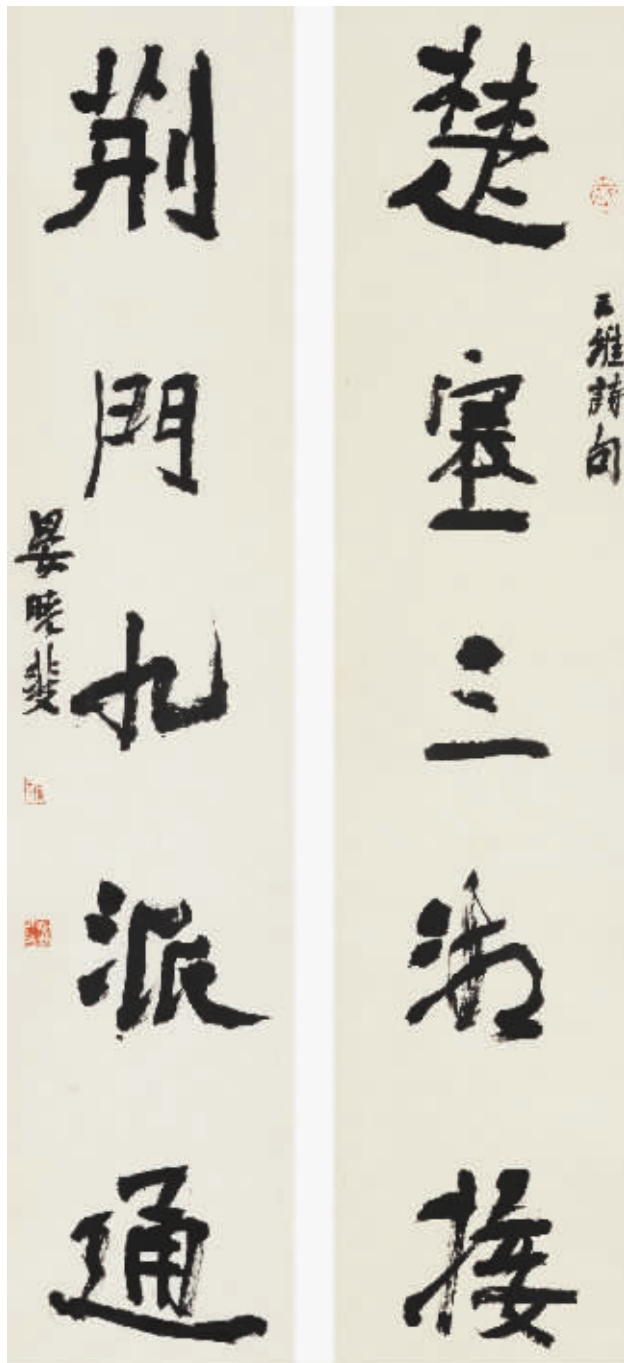 楚塞三湘接
王維詩句
荆門九派通
晏曉斐